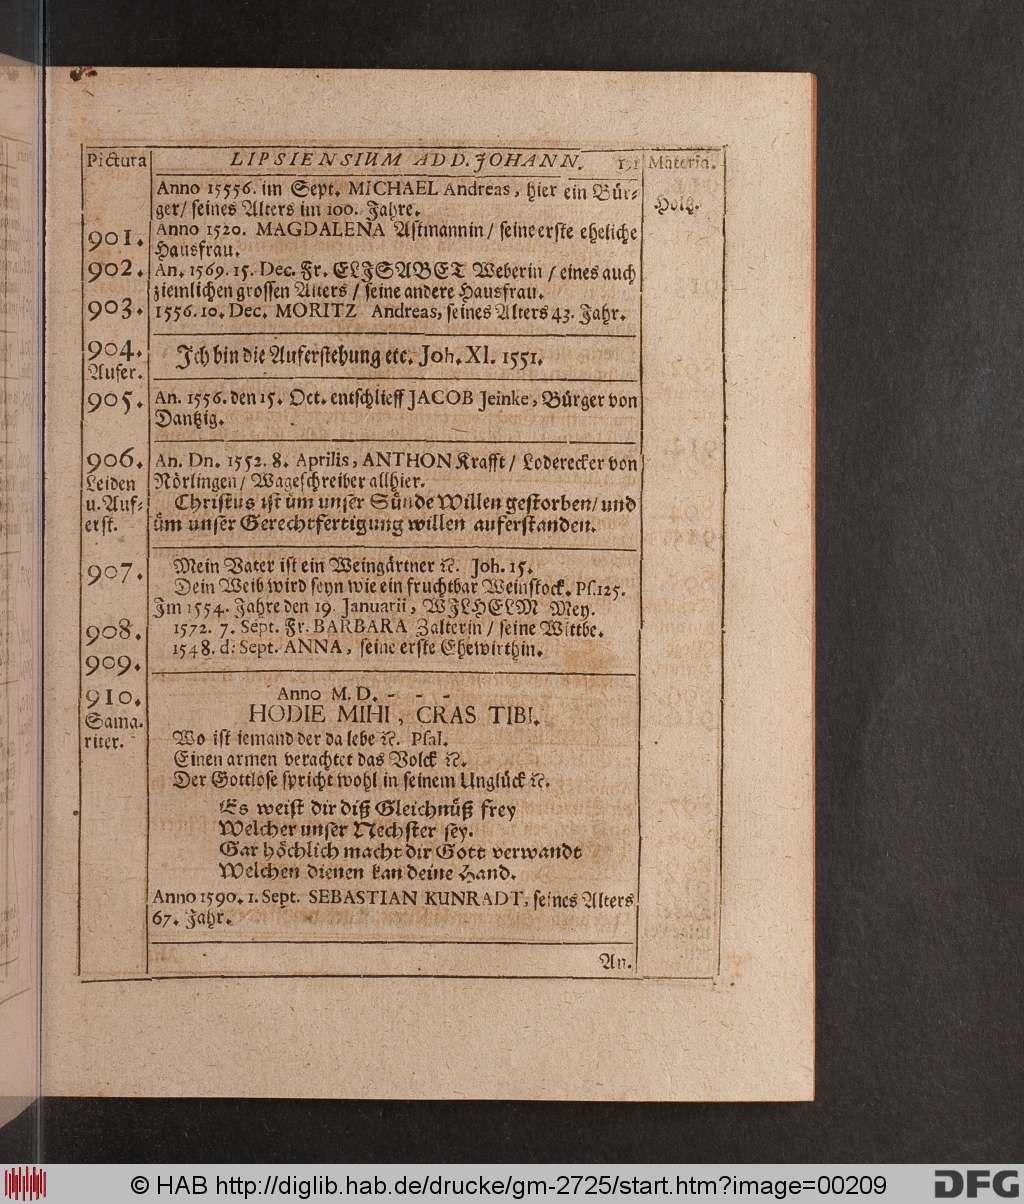 Pictura LIPSIENSIUM ADD. JOHANN. 191 Materia.
Anno 15556. im Sept. MICHAEL Andreas, hier ein Bür-
Holtz.
ger/ seines Alters im 100. Jahre.
901. Anno 1520. MAGDALENA Astmannin/ seine erste eheliche
Hausfrau.
902. An. 1569. 15. Dec. Fr. ELISABET Weberin / eines auch
ziemlichen grossen Alters / seine andere Hausfrau.
903. 1556. 10. Dec. MORITZ Andreas, seines Alters 43. Jahr.
904. Ich bin die Auferstehung etc. Joh. XI. 1551.
Aufer.
905. An. 1556. den 15. Oct. entschlieff JACOB Jeinke, Bürger von
Dantzig.
906. An. Dn. 1552. 8. Aprilis, ANTHON Krafft / Loderecker von
Leiden Nörlingen / Wageschreiber allhier.
u. Auf- Christus ist üm unser Sünde Willen gestorben/ und
erst. üm unser Gerechtfertigung willen auferstanden.
907. Mein Vater ist ein Weingärtner ꝛc. Joh. 15.
Dein Weib wird seyn wie ein fruchtbar Weinstock. Ps. 125.
Im 1554. Jahre den 19. Januarii, WILHELM Mey.
908. 1572. 7. Sept. Fr. BARBARA Zalterin / seine Wittbe.
909. 1548. d: Sept. ANNA, seine erste Ehewirthin.
910. Anno M. D. - - -
Sama- HODIE MIHI, CRAS TIBI.
riter. Wo ist iemand der da lebe ꝛc. Psal.
Einen armen verachtet das Volck ꝛc.
Der Gottlose spricht wohl in seinem Unglück ꝛc.
Es weist dir diß Gleichnüß frey
Welcher unser Nechster sey.
Gar höchlich macht dir Gott verwandt
Welchen dienen kan deine Hand.
Anno 1590. 1. Sept. SEBASTIAN KUNRADT, seines Alters
67. Jahr.
An.
© HAB http://diglib.hab.de/drucke/gm-2725/start.htm?image=00209
DFG